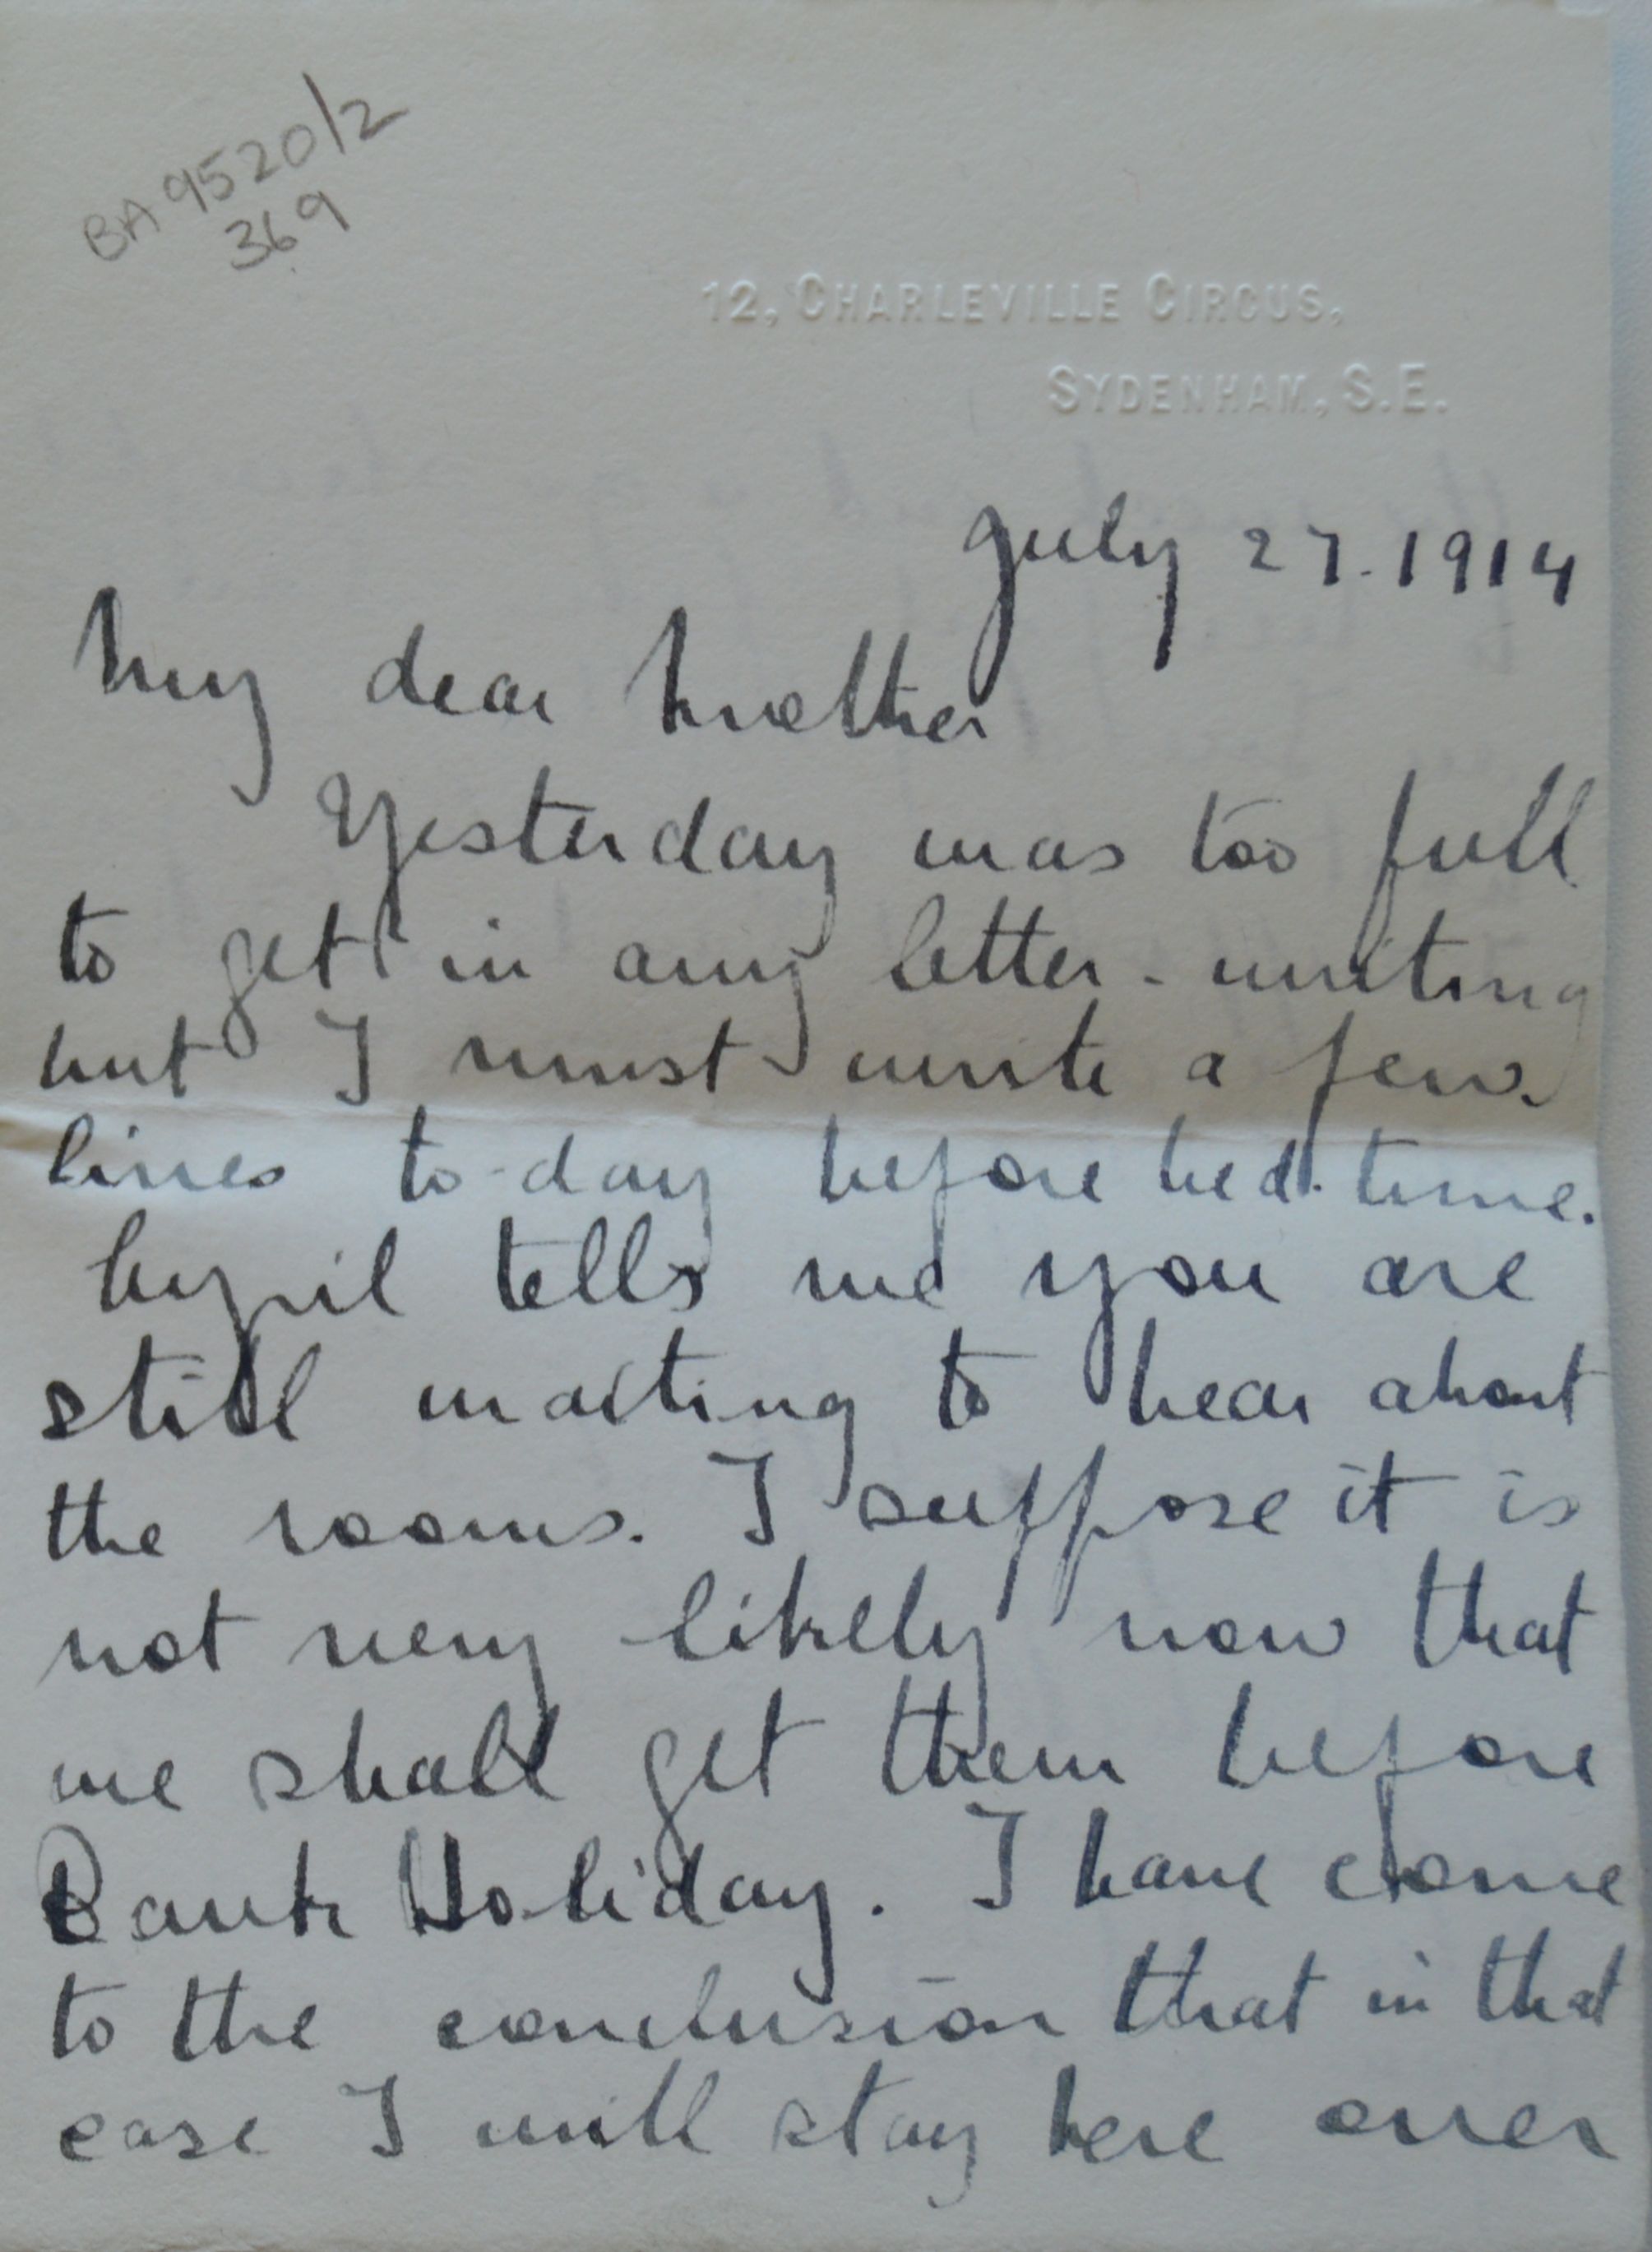 BA 9520/2
369
12, CHARLEVILLE CIRCUS,
SYDENHAM, S.E.
July 27. 1914
My dear Mother
Yesterday was too full
to get in any letter-writing
but I must write a few
lines to-day before bed-time.
tells me you are
still waiting to hear about
the rooms. I suppose it is
not very likely now that
we shall get them before
Bank Holiday. I have come
to the conclusion that in that
case I will stay here over